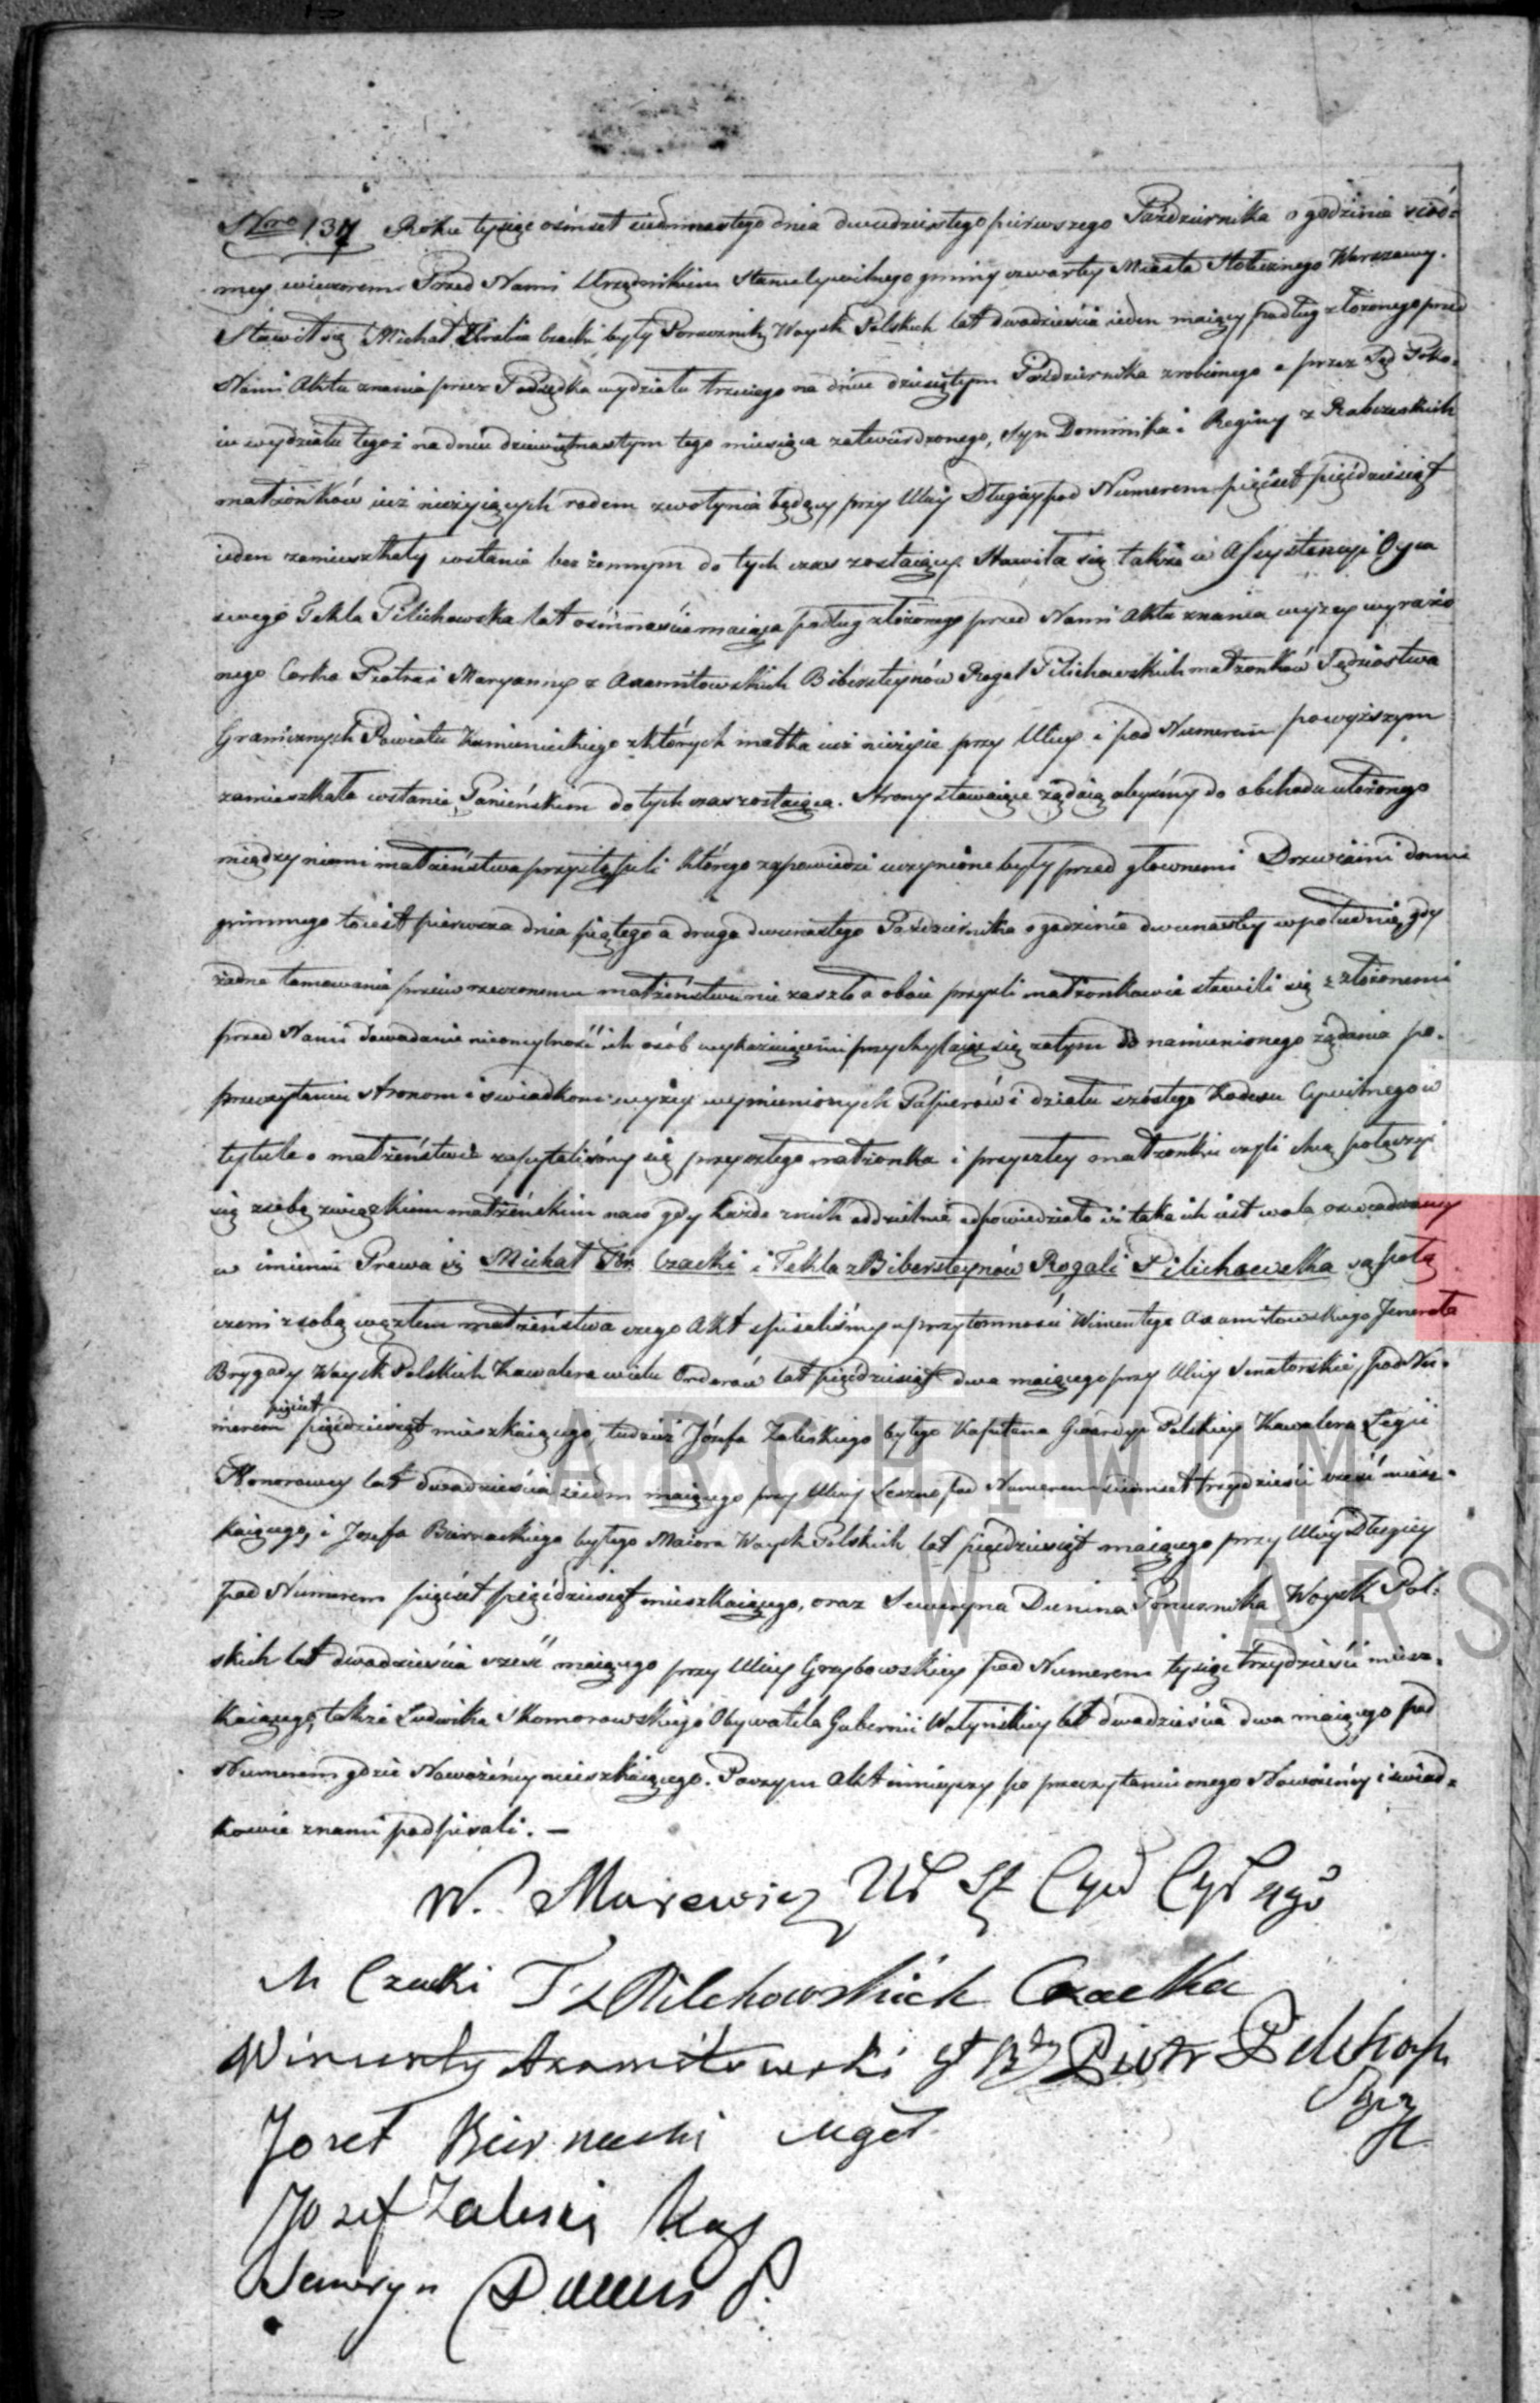 Nro 137 Roku tysiąc ośmset siedmnastego dnia dwudziestego pierwszego Października o godzinie siód-
mey wieczorem Przed Nami Urzędnikiem Stanu Cywilnego gminy czwartey Miasta Stołecznego Warszawy.
Stawił się Michał Hrabia Czacki były Porucznik Woysk Polskich lat dwadzieścia ieden maiący podług złożonego przed
Nami Aktu znania przez Podsędka wydziału trzeciego na dniu dziesiątym Października zrobionego a przez Sąd Poko-
iu wydziału tegoż na dniu dziewiętnastym tego miesiąca zatwierdzonego, Syn Dominika i Reginy z
małżonków iuż nieżyiących rodem z Wołynia będący przy Ulicy Długiey pod Numerem pięćset pięćdziesiąt
ieden zamieszkały w stanie bezżennym do tych czas zostaiący. Stawiła się także w Assystencyi Oyca
swego Tekla Pilichowska lat ośmnaście maiąca podług złożonego przed Nami Aktu znania wyżey wyrażo
nego Corka Piotra i Maryanny z Axamitowskich Bibersteynów Rogal Pilichowskich małżonków Sędziostwa
Granicznych Powiatu Kamienieckiego z których matka iuż nieżyie przy Ulicy i pod Numerem powyższym
zamieszkała w stanie Panieńskim do tych czas zostaiąca. Strony stawaiące żądaią abyśmy do obchodu ułożonego
między niemi małżeństwa przystąpili którego zapowiedzi uczynione były przed głownemi Drzwiami domu
gminnego to iest pierwsza dnia piątego a druga dwunastego Października o godzinie dwunastey w południe, gdy
żadne tamowanie przeciw rzeczonemu małżeństwu nie zaszło a oboie przyszli małżonkowie stawili się z złożonemi
przed Nami dowodami nieomylność ich osób wykazuiącemi przychylaiąc się zatym do namienionego żądania po-
przeczytaniu Stronom i świadkom wyżey wymienionych Papierów i działu szóstego Kodexu Cywilnego w
tytule o małżeństwie zapytaliśmy się przyszłego małżonka i przyszłey małżonki czyli chcą połączyć
się z sobą związkiem małżeńskim na co gdy każde z nich oddzielnie odpowiedziało iż taka ich iest wola oświadczamy
w imieniu Prawa iż Michał Hr. Czacki i Tekla z Bibersteynów Rogali Pilichowska są połą
czeni z sobą węzłem małżeństwa czego Akt spisaliśmy w przytomności Wincentego Axamitowskiego Jenerała
Brygady Woysk Polskich Kawalera wielu Orderów lat pięćdziesiąt dwa maiącego przy Ulicy Senatorskiey pod Nu-
merem pięćset pięćdziesiąt mieszkaiącego, tudzież Józefa Zaleskiego byłego Kapitana Gwardyi Polskiey Kawalera Legii
Honorowey lat dwadzieścia siedm maiącego przy Ulicy Leszno pod Numerem siedmset trzydzieści sześć miesz-
kaiącego, i Józefa Biernackiego byłego Maiora Woysk Polskich lat pięćdziesiąt maiącego przy Ulicy Długiey
pod Numerem pięćset pięćdziesiąt mieszkaiącego, oraz Seweryna Dunina Porucznika Woysk Pol-
skich lat dwadzieścia sześć maiącego przy Ulicy Grzybowskiey pod Numerem tysiąc trzydzieści miesz-
kaiącego, także Ludwika Skomorowskiego Obywatela Gubernii Wołyńskiey lat dwadzieścia dwa maiącego pod
Numerem gdzie Nowożeńcy mieszkaiącego. Poczym Akt ninieyszy po przeczytaniu onego Nowożeńcy i świad-
kowie z nami podpisali. —
W. Murewicz St Cyw
M Czacki T z Pilchowskich Czacka
Wincenty Axamitowski Piotr
Jozef Biernacki
Jozef Zaleski Kap
Seweryn Dunin P.
ARCHIWUM
W WARS